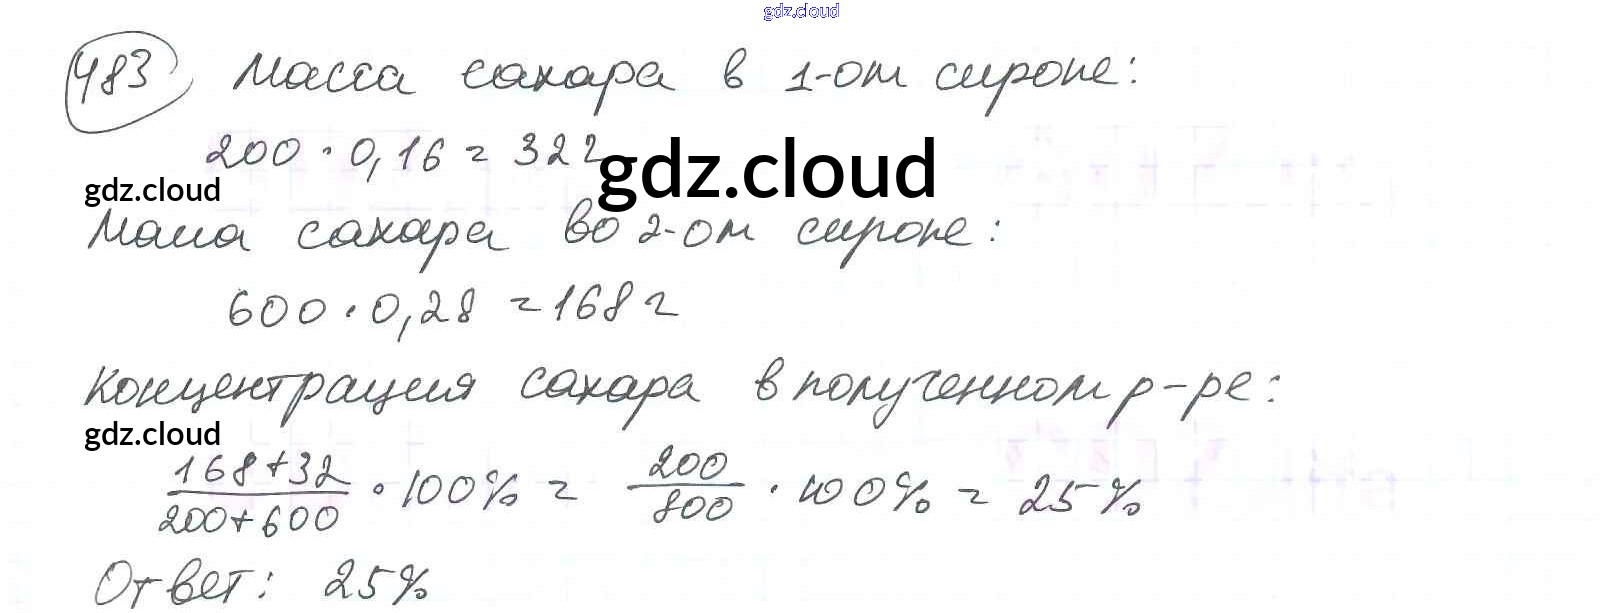 gdz.cloud
483 Масса сахара в 1-ом сиропе:
200 · 0,16 = 32 г
gdz.cloud
gdz.cloud
Масса сахара во 2-ом сиропе:
600 · 0,28 = 168 г
Концентрация сахара в полученном р-ре:
gdz.cloud
168+32 / 200+600 · 100% = 200 / 800 · 100% = 25%
Ответ: 25%